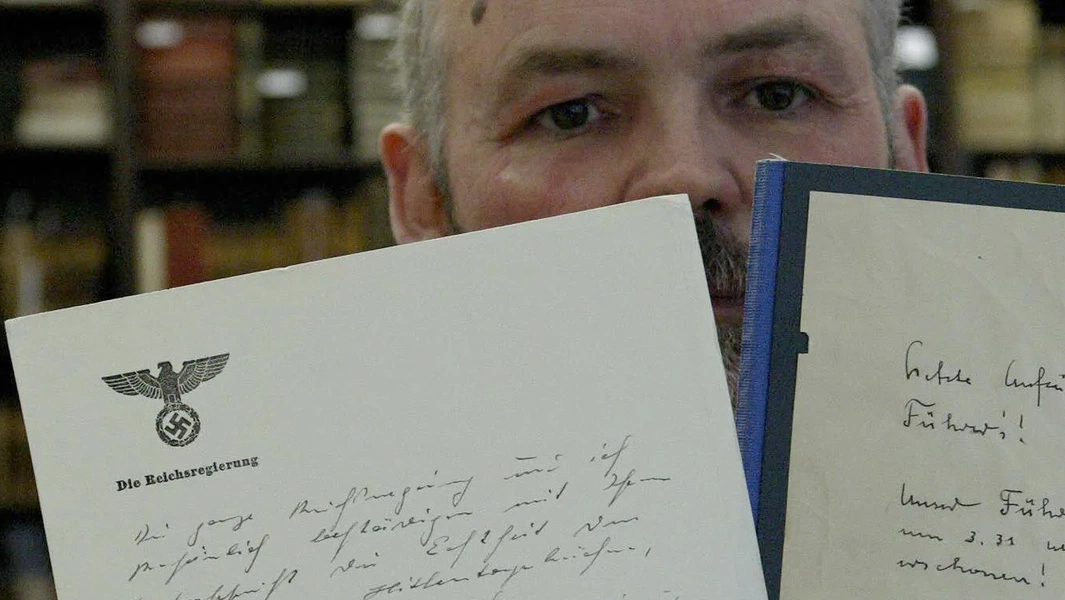 Die Reichsregierung
Die ganze Reichsregierung und ich
persönlich bestätigen mit
die Echtheit der
Hitlertagebücher,
Letzte
Führer's!
Unser Führ
um 3.31
erschossen!